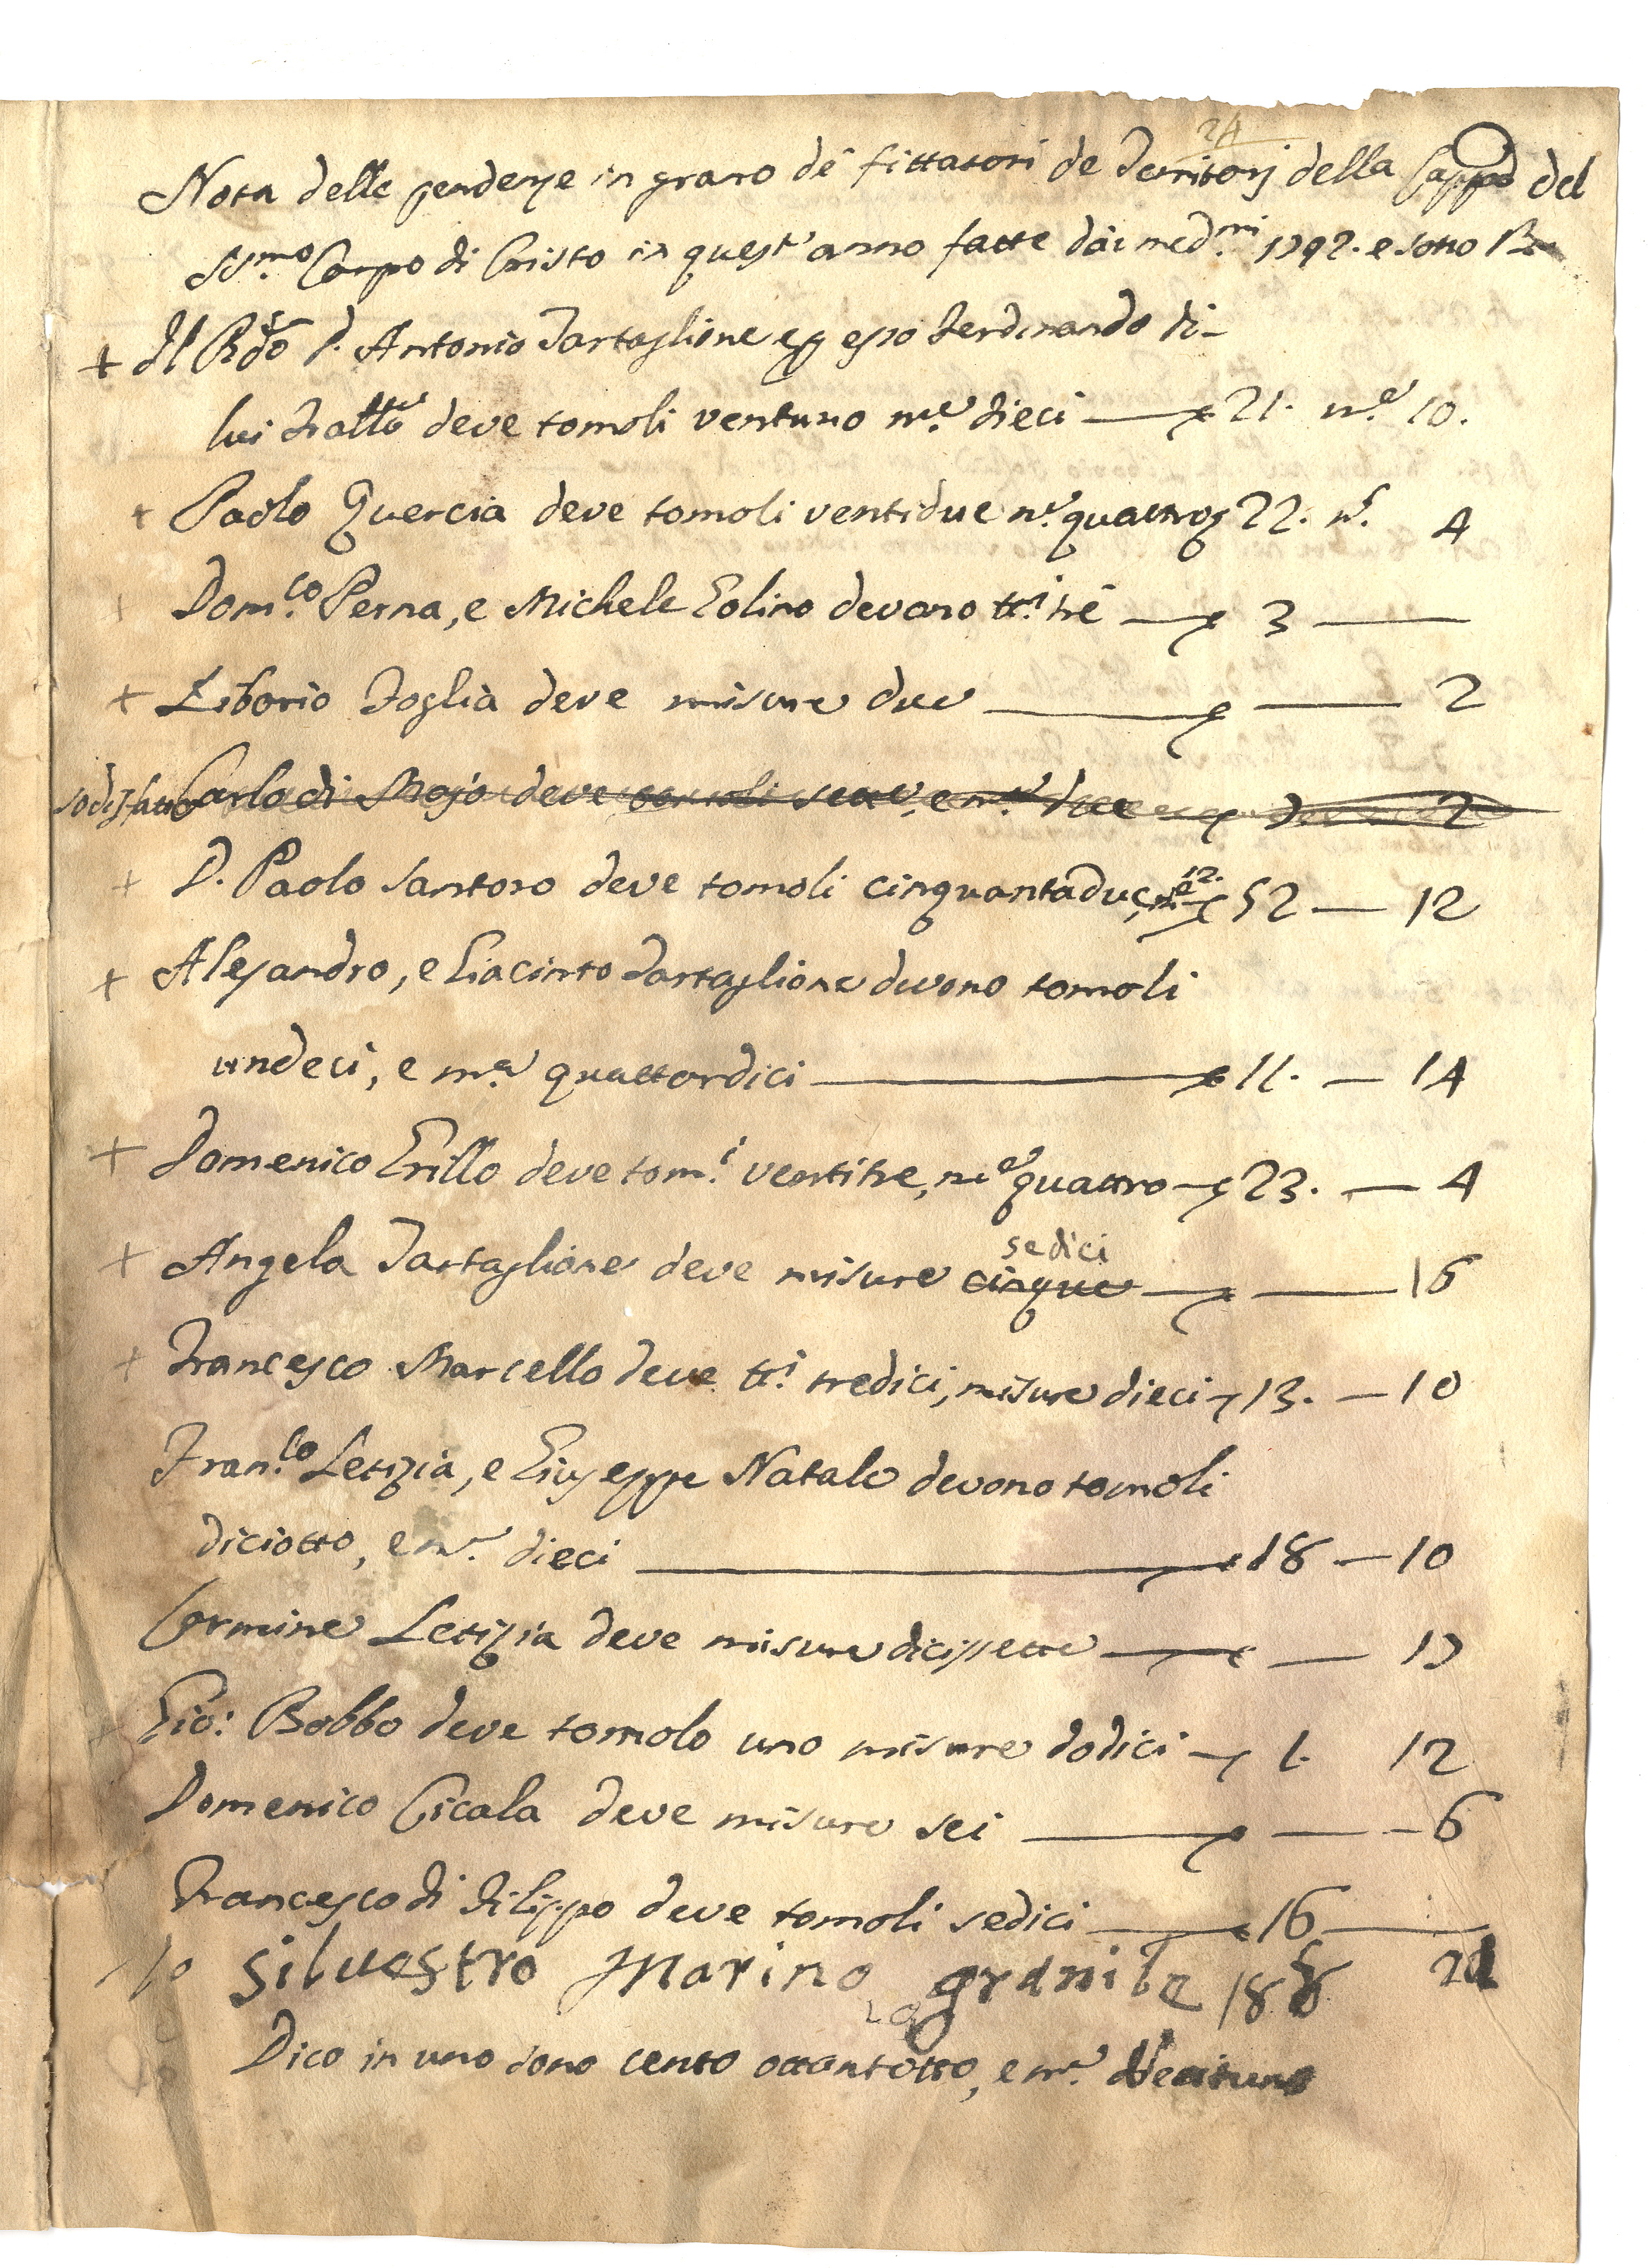 24
Nota delle pendenze in grano de' fittatori de Territorj della Cappa del
SS.mo Corpo di Cristo in quest'anno fatte dai med.mi 1792. e sotto
+ Il Rdo D. Antonio Tartaglione e p esso Ferdinando di
lui Fratto deve tomoli ventuno m.e dieci — 21. m.e 10.
+ Paolo Quercia deve tomoli ventidue m.e quattro 22. m.e 4
Dom.co Perna, e Michele Golino devono tt.i trè — 3 —
+ Liborio Foglia deve misure due — — 2
sodisfatto Carlo di Majo deve tomoli sette, e m.e due — 7 2
+ D. Paolo Santoro deve tomoli cinquantadue, m.e 12. 52 — 12
+ Alesandro, e Giacinto Tartaglione devono tomoli
undeci, e m.e quattordici — 11. — 14
+ Domenico Grillo deve tom.i ventitre, m.e quattro — 23. — 4
sedici
+ Angela Tartaglione deve misure cinque — — 16
+ Francesco Marcello deve tt.i tredici, misure dieci — 13. — 10
Fran.co Letizia, e Giuseppe Natale devono tomoli
diciotto, e m.e dieci — 18 — 10
Carmine Letizia deve misure dicissette — — 17
Gio: Bobbo deve tomolo uno misure dodici — 1. 12
Domenico Cicala deve misure sei — — 6
Francesco di Filippo deve tomoli sedici — 16 —
Io silvestro Marino granile 188 21
Dico in uno sono cento ottantotto, e m.e Ventuno